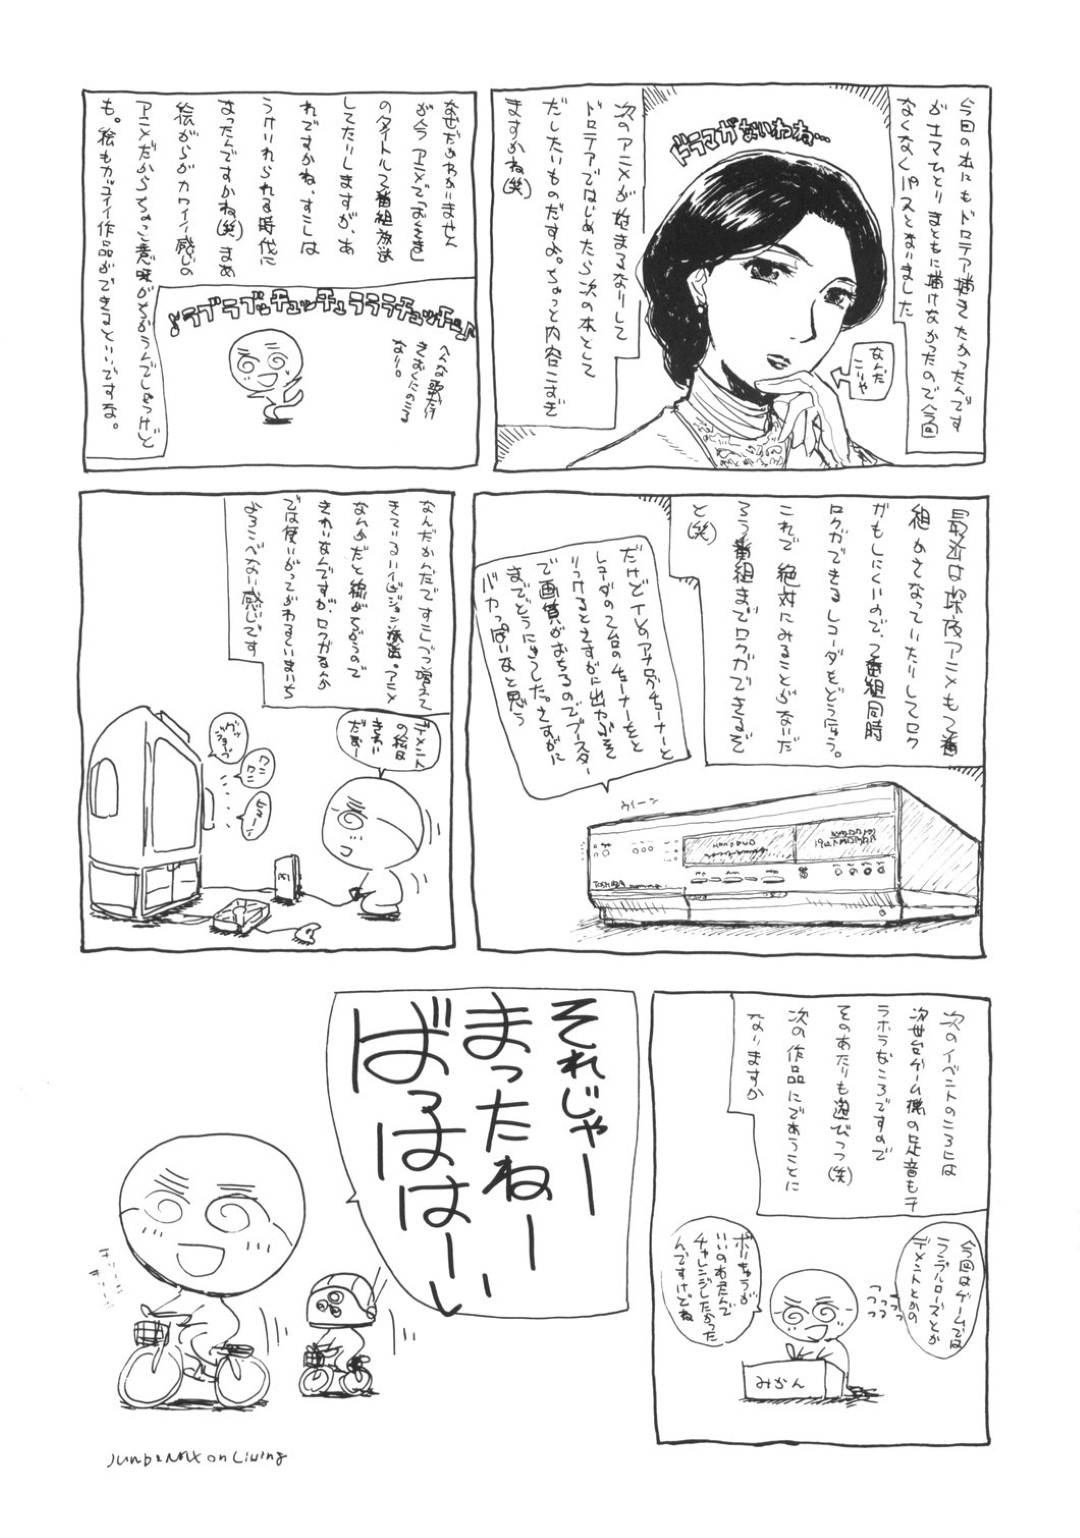 今回の本にもドロテア描きたかったんです
がナマひとりまともに描けなかったので今回
なくなくパスとなりました
ドラマがないわね…
なんだ
こいや
次のアニメが始まるなりして
ドロテアではじめたら次の本として
だしたいものだすよ。ちょっと内容こすぎ
ますかね(笑)
なぜだかわかりません
が今アニメで「おくさま」
のタイトルで2番組放送
してたりしますが、あ
れですかね、すこしは
うけいれられる時代に
なったんですかね(笑)まぁ
絵がらがカワイイ感じの
アニメだからちょっと意味がちがうんでしょうけど
も。絵もカワイイ作品ができるといいですな。
♪ラブラブッチュッチュラララチュッチュ♪
へんな歌だけ
きおくにのこる
なり。
最近は深夜アニメも2番
組かさなっていたりしてロク
ガもしにくいので、2番組同時
ロクガできるレコーダをどうにゅう。
これで絶対にみることがないだ
ろう番組までロクガできるぞ
と(笑)
だけどTVのアナログチューナーと
レコーダの2台のチューナーをと
りつけるとさすがに出力ぶそく
で画質がおちるのでブースター
までどうにゅうした。さすがに
バカっぽいなと思う
ウィーン
TOSHIBA
なんだかんだですこしづつ増えて
きているハイビジョン放送。アニメ
なんかだと線がちがうので
きれいなんですが、ロクガなんか
では使いがってがわるくていまいち
よろこべない感じです
デメント
の絵は
きれい
だなー
ワン
ワン
次のイベントのころには
次世台ゲーム機の足音もチ
ラホラなころですので
そのあたりも遊びつつ(笑)
次の作品にであうことに
なりますか
今回はゲームでは
ランブルローズとか
デメントとかの
つっこみが
いいのお君んで
チャレンジしたかった
んですけどね
みかん
それじゃー
まったねー
ばっはは〜い
JunbaMAX on Living